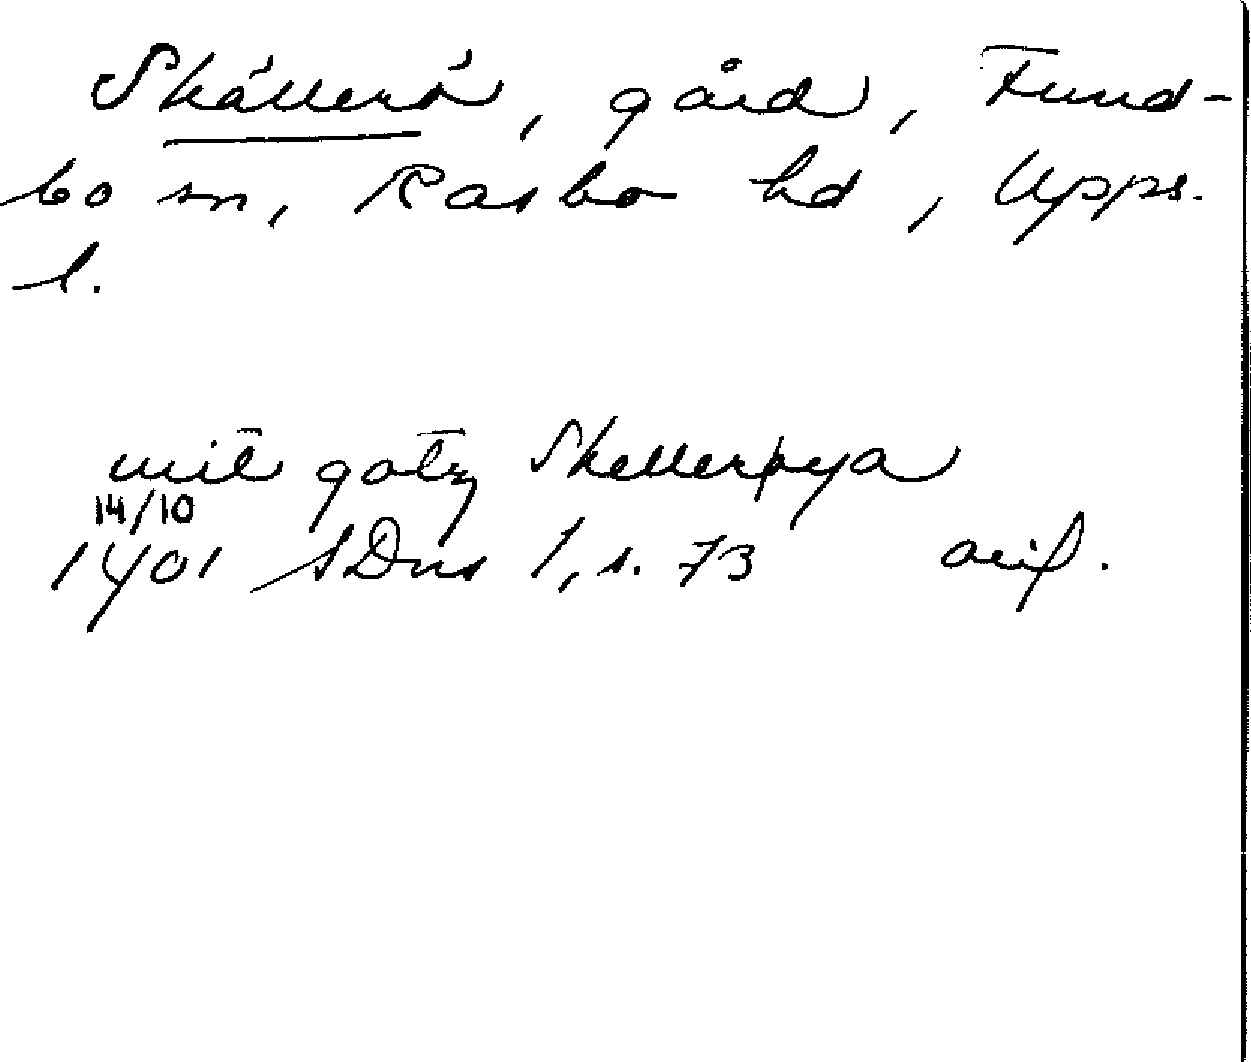 Skällerö, gård, Fund-
bo sn, Rasbo hd, Upps.
l.
mit gotz Skellerøya
14/10
1401 SDns 1, s. 73 avif.